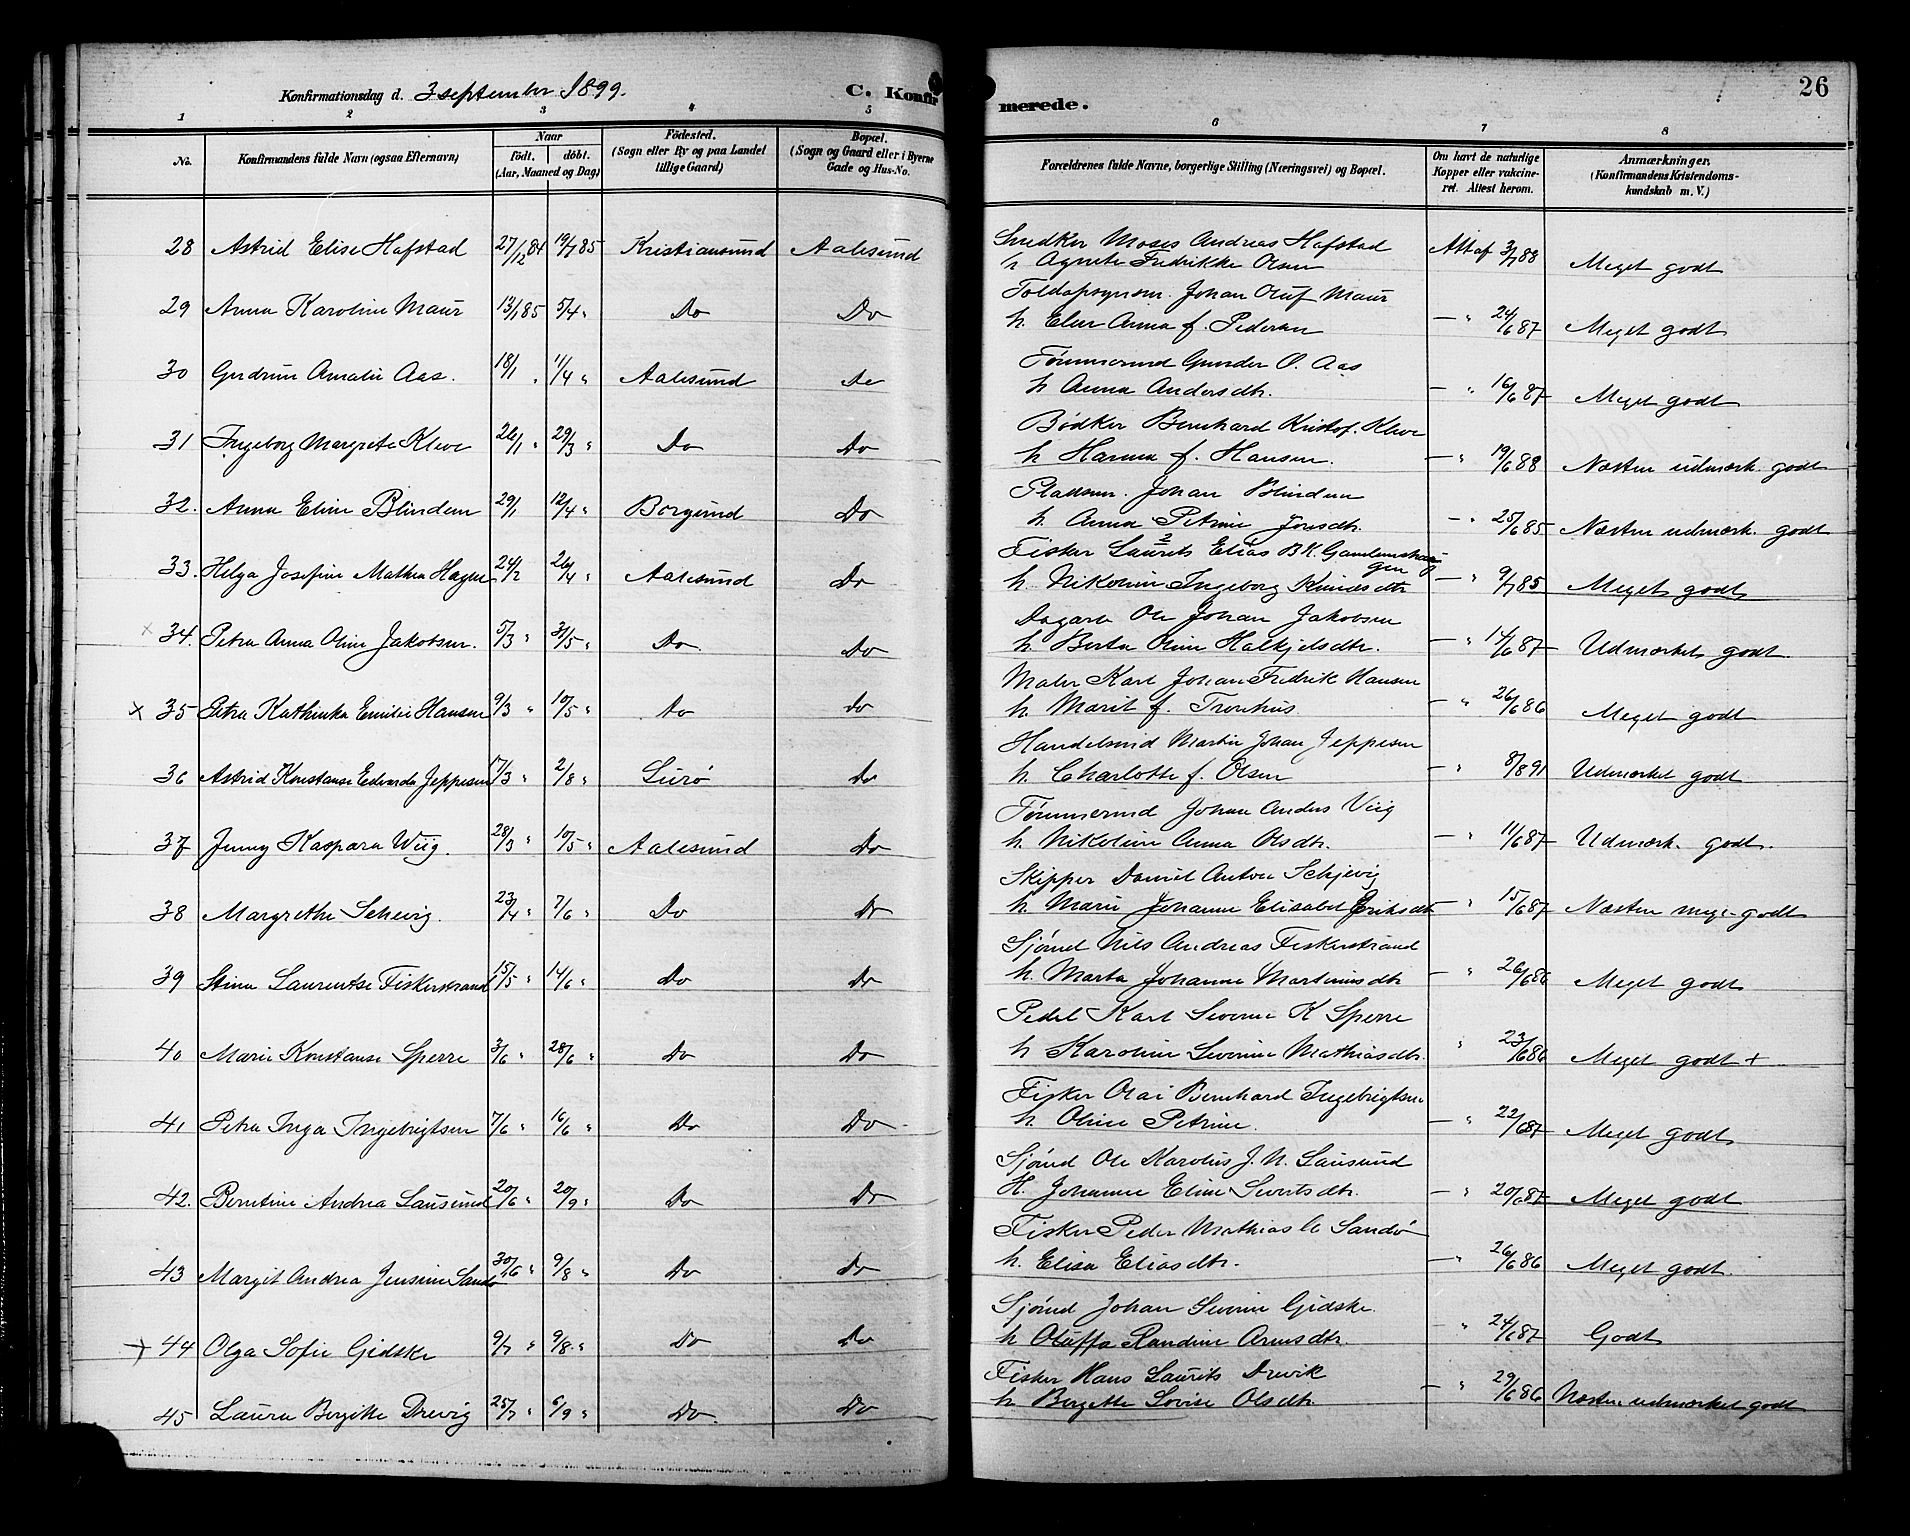 26
Konfirmationsdag d. 3 september 1899.
C. Konfirmerede.
1 2 3 4 5 6 7 8
No.
Konfirmandens fulde Navn (ogsaa Efternavn)
Naar
født. døbt.
(Aar, Maaned og Dag)
Fødested.
(Sogn eller By og paa Landet
tillige Gaard)
Bopæl.
(Sogn og Gaard eller i Byerne
Gade og Hus-No.
Forældrenes fulde Navne, borgerlige Stilling (Næringsvei) og Bopæl.
Om havt de naturlige
Kopper eller vakcine-
ret. Attest herom.
Anmærkninger.
(Konfirmandens Kristendoms-
kundskab m. V.)
28 Astrid Elise Hafstad 27/12 84 19/7 85 Kristiansund Aalesund
Snedker Moses Andreas Hafstad
h Agnete Fredrikke Olsen Att af 3/7 88 Meget godt
29 Anna Karoline Maur 13/1 85 5/4 " Do Do
Toldopsynsm. Johan Oluf Maur
h. Elen Anna f. Pedersen — " 24/6 87 Meget godt
30 Gudrun Amalie Aas. 18/1 " 11/4 " Aalesund Do
Tømmermd Gunder O. Aas
h Anna Andersdtr. — " 16/6 87 Meget godt
31 Ingeborg Margrete Kleve 26/1 " 29/3 " Do Do
Bødker Bernhard Kristof. Kleve
h Hanna f. Hansen. — " 19/6 88 Næsten udmærk. godt
32. Anna Eline Blindem 29/1 12/4 " Borgund Do
Pladsm. Johan Blindem
h. Anna Petrine Jonsdtr. — " 25/6 85 Næsten udmærk. godt
33. Helga Josefine Mathea Hagen 24/2 26/4 " Aalesund Do
Fisker Laurits Elias B.K.
h. Nikoline Ingeborg Knudsdtr — " 9/7 85 Meget godt
34. Petra Anna Oline Jakobsen. 5/3 " 31/5 " Do Do
Dagarb Ole Johan Jakobsen
h. Berta Oline Halkjelsdtr. — " 14/6 87 Udmærket godt.
x 35 Petra Kathinka Emilie Hansen 9/3 " 10/5 " Do Do
Maler Karl Johan Fredrik Hansen
h. Marit f. Tronhus. — " 26/6 86 Meget godt
36 Astrid Konstanse Edvarda Jeppesen 17/3 " 2/8 " Lurø Do
Handelsmd Martin Johan Jeppesen
h. Charlotte f. Olsen — " 8/8 91 Udmærket godt
37 Jenny Kaspara Wiig. 28/3 " 10/5 " Aalesund Do
Tømmermd Johan Anders Viig
h. Nikoline Anna Olsdtr. — " 11/6 87 Udmærk. godt.
38 Margrethe Schevig. 23/4 " 7/6 " Do Do
Skipper Daniel Anton Schjevig
h. Marie Johanne Elisabet Eriksdtr " 15/6 87 Næsten meget godt
39 Stina Laurentse Fiskerstrand 15/5 " 14/6 " Do Do
Sjømd Nils Andreas Fiskerstrand
h. Marta Johanne Martinusdtr — " 26/6 86 Meget godt
40 Marie Konstanse Sperre 3/6 " 28/6 " Do Do
Pedel Karl Severin K Sperre
h Karoline Severine Mathiasdtr. " 23/6 86 Meget godt +
41 Petra Inga Ingebrigtsen 7/6 " 16/6 " Do Do
Fisker Olai Bernhard Ingebrigtsen
h Oline Petrine. — " 22/6 87 Meget godt
42. Berntine Andrea Lausund 20/6 " 20/9 " Do Do
Sjømd Ole Karolus J. N. Lausund
H. Johanne Eline Sivertsdtr. — " 20/6 87 Meget godt
43 Margit Andrea Jensine Sandø 30/6 " 9/8 " Do Do
Fisker Peder Mathias A Sandø
h. Elisa Eliasdtr. — " 26/6 86 Meget godt.
x 44 Olga Sofie Gidske 9/7 " 9/8 " Do Do
Sjømd Johan Severin Gidske.
h Oluffa Randine Arnesdtr. — " 24/6 87 Godt
45 Laura Bergitte Drevig 25/7 " 6/9 " Do. Do
Fisker Hans Laurits Drevik
h Bergette Lovise Olsdtr. — " 29/6 86 Næsten udmærket godt